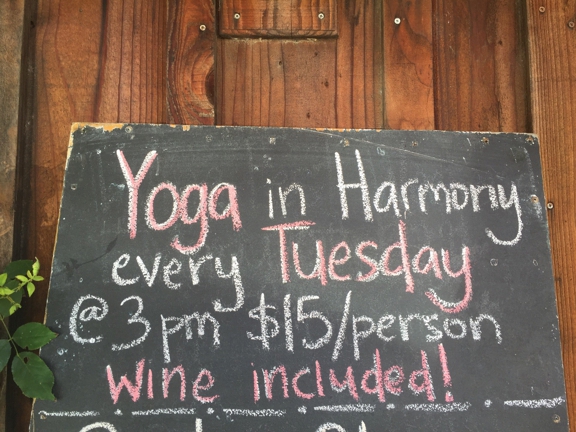 Yoga in Harmony
every Tuesday
@ 3pm $15/person
wine included!